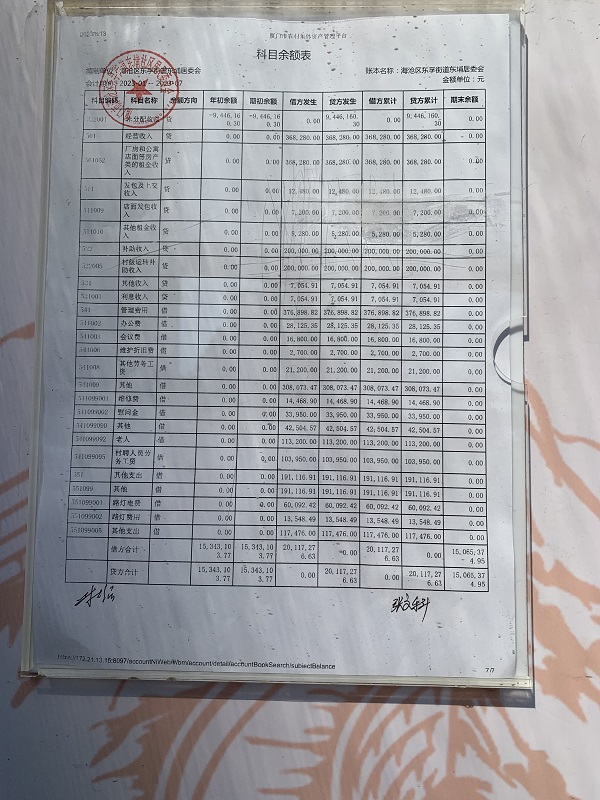 厦门市农村集体资产管理平台
科目余额表
编制单位：海沧区东孚街道东埔居委会 账本名称：海沧区东孚街道东埔居委会
会计期间：2023-01 -- 2023-07 金额单位：元
科目编码 科目名称 余额方向 年初余额 期初余额 借方发生 贷方发生 借方累计 贷方累计 期末余额
未分配收益 贷 -9,446,160.30 -9,446,160.30 0.00 9,446,160.30 0.00 9,446,160.30 0.00
501 经营收入 贷 0.00 0.00 368,280.00 368,280.00 368,280.00 368,280.00 0.00
501032 厂房和公寓店面等房产类的租金收入 贷 0.00 0.00 368,280.00 368,280.00 368,280.00 368,280.00 0.00
511 发包及上交收入 贷 0.00 0.00 12,480.00 12,480.00 12,480.00 12,480.00 0.00
511009 店面发包收入 贷 0.00 0.00 7,200.00 7,200.00 7,200.00 7,200.00 0.00
511010 其他租金收入 贷 0.00 0.00 5,280.00 5,280.00 5,280.00 5,280.00 0.00
522 补助收入 贷 0.00 0.00 200,000.00 200,000.00 200,000.00 200,000.00 0.00
522005 村级运转补助收入 贷 0.00 0.00 200,000.00 200,000.00 200,000.00 200,000.00 0.00
531 其他收入 贷 0.00 0.00 7,054.91 7,054.91 7,054.91 7,054.91 0.00
531001 利息收入 贷 0.00 0.00 7,054.91 7,054.91 7,054.91 7,054.91 0.00
541 管理费用 借 0.00 0.00 376,898.82 376,898.82 376,898.82 376,898.82 0.00
541002 办公费 借 0.00 0.00 28,125.35 28,125.35 28,125.35 28,125.35 0.00
541003 会议费 借 0.00 0.00 16,800.00 16,800.00 16,800.00 16,800.00 0.00
541006 维护折旧费 借 0.00 0.00 2,700.00 2,700.00 2,700.00 2,700.00 0.00
541008 其他劳务工资 借 0.00 0.00 21,200.00 21,200.00 21,200.00 21,200.00 0.00
541099 其他 借 0.00 0.00 308,073.47 308,073.47 308,073.47 308,073.47 0.00
541099001 维修费 借 0.00 0.00 14,468.90 14,468.90 14,468.90 14,468.90 0.00
541099002 慰问金 借 0.00 0.00 33,950.00 33,950.00 33,950.00 33,950.00 0.00
541099090 其他 借 0.00 0.00 42,504.57 42,504.57 42,504.57 42,504.57 0.00
541099092 老人 借 0.00 0.00 113,200.00 113,200.00 113,200.00 113,200.00 0.00
541099095 村聘人员劳务工资 借 0.00 0.00 103,950.00 103,950.00 103,950.00 103,950.00 0.00
551 其他支出 借 0.00 0.00 191,116.91 191,116.91 191,116.91 191,116.91 0.00
551099 其他 借 0.00 0.00 191,116.91 191,116.91 191,116.91 191,116.91 0.00
551099001 路灯电费 借 0.00 0.00 60,092.42 60,092.42 60,092.42 60,092.42 0.00
551099002 路灯费用 借 0.00 0.00 13,548.49 13,548.49 13,548.49 13,548.49 0.00
551099005 其他支出 借 0.00 0.00 117,476.00 117,476.00 117,476.00 117,476.00 0.00
借方合计 15,343,103.77 15,343,103.77 20,117,276.63 0.00 20,117,276.63 0.00 15,065,374.95
贷方合计 15,343,103.77 15,343,103.77 0.00 20,117,276.63 0.00 20,117,276.63 15,065,374.95
https://172.21.13.15:8097/accountNiWeb/#/bm/account/detail/accountBookSearch/subjectBelance 7/7